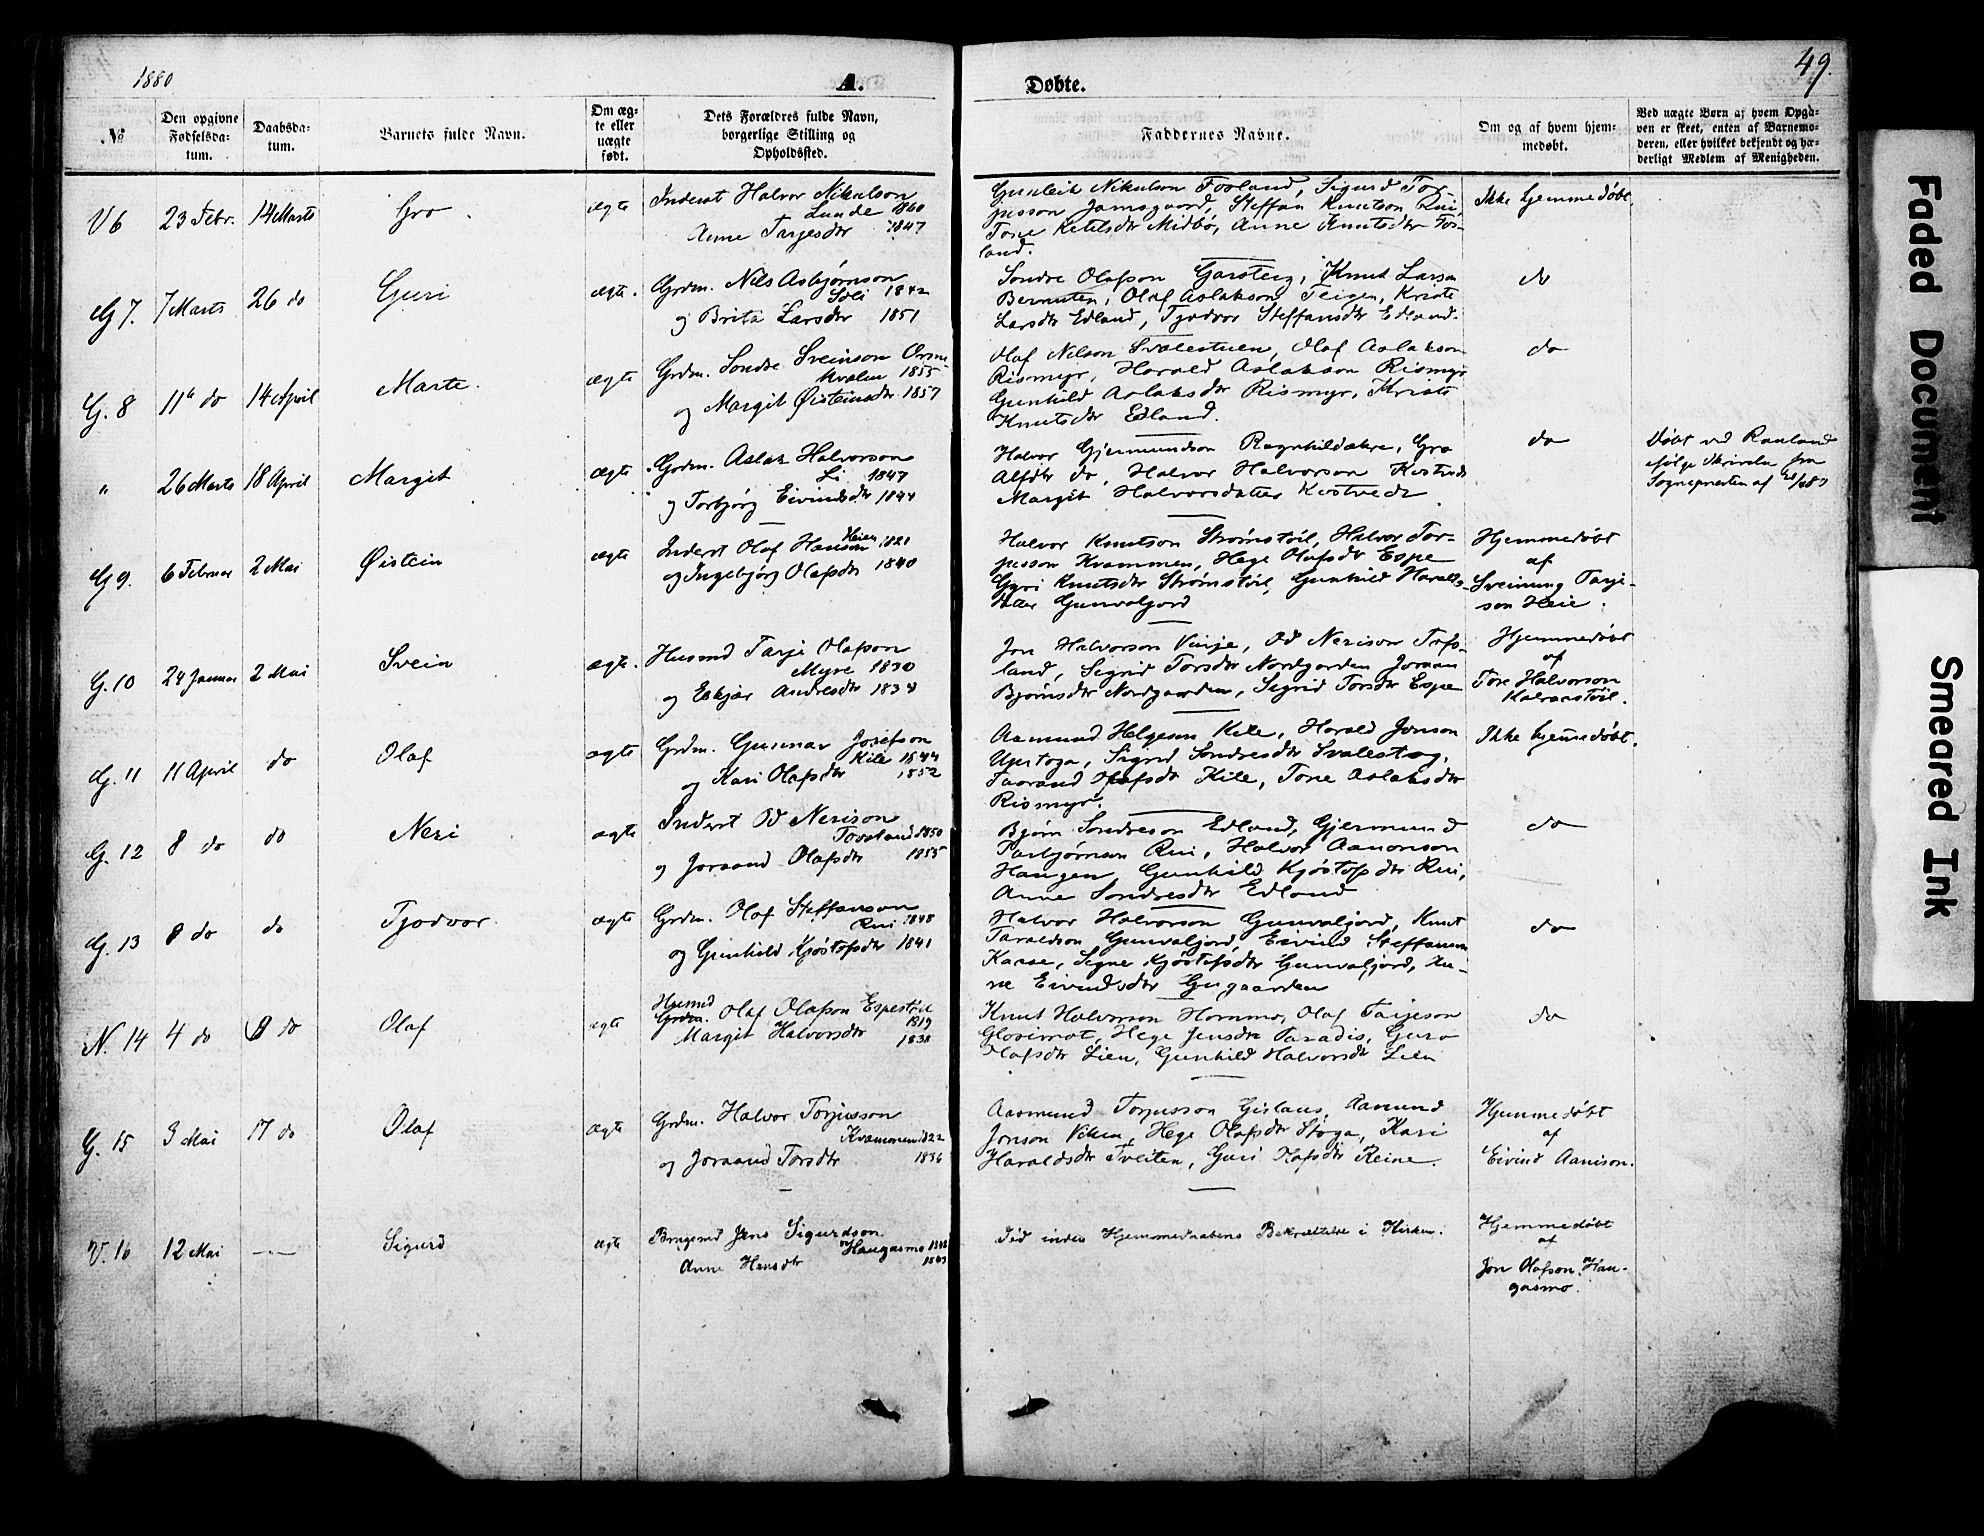 1880
A.
Døbte.
49.
№
Den opgivne Fødselsdatum.
Daabsdatum.
Barnets fulde Navn.
Om ægte eller uægte født.
Dets Forældres fulde Navn, borgerlige Stilling og Opholdssted.
Faddernes Navne.
Om og af hvem hjemmedøbt.
Ved uægte Børn af hvem Opgaven er skeet, enten af Barnemoderen, eller hvilket bekjendt og hæderligt Medlem af Menigheden.
V 6 23 Febr. 14 Marts Gro ægte
Inderst Halvor Nikulson
Lunde 1860
Anne Tarjesdtr 1847
Gunleik Nikulson Fosland, Sigurd Tor-
jusson Jamsgaard, Steffan Knutson Rui,
Tone Ketilsdtr Midbø, Anne Knutsdtr Fos-
land.
Ikke hjemmedøbt.
G 7. 7 Marts 26 do Guri ægte.
Grdm. Nils Asbjørnson
1842
og Brita Larsdtr 1851
Sondre Olafson Garsteig, Knut Larson
Bernuten, Olaf Aslakson Teigen, Kriste
Larsdtr Edland, Tjodvor Steffansdtr Edland.
do
G. 8 11te do 14 April Marte. ægte
Grdm. Sondre Sveinson Orme
kvalen 1855
og Margit Øisteinsdtr 1857
Olaf Nilson Svalestuen, Olaf Aslakson
Rismyr, Harald Aslakson Rismyr
Gunhild Aslaksdtr Rismyr, Kriste
Knutsdtr Edland.
do
" 26 Marts 18 April Margit ægte
Grdm. Aslak Halvorson
Li 1847
og Torbjørg Eivindsdtr 1844
Halvor Gjermundson Ragnhildakre, Gro
Alfdtr do, Halvor Halvorson Kostveit
Margit Halvorsdatter Kostveit.
do
Døbt ved Rauland
ifølge Skrivelse fra
Sognepresten af
G 9. 6 Februar 2 Mai Øistein ægte
Inderst Olaf Hanson
Heien 1821
og Ingebjørg Olafsdtr 1840
Halvor Knutson Strømstøil, Halvor Tor-
jusson Kvammen, Hege Olafsdtr Espe
Gyri Knutsdtr Strømstøil, Gunhild Haralds-
datter Gunvaljord
Hjemmedøbt
af
Sveinung Tarje-
son Heie.
G. 10 24 Januar 2 Mai Svein ægte.
Husmd Tarje Olafson
Myre 1830
og Eskjær Andresdtr 1834
Jon Halvorson Vinje, Od Nerison Tors-
land, Sigrid Torsdtr Nordgarden Joraan
Bjørnsdtr Nordgaarden, Sigrid Torsdtr Espe
Hjemmedøbt
af
Tore Halvorson
G. 11 11 April do Olaf ægte
Grdm. Gunnar Josefson
Kile 1844
og Kari Olafsdtr 1852
Aamund Helgeson Kile, Harald Jonson
Upistoga, Sigrid Sondresdtr Svalestog,
Taarand Olafsdtr Kile, Tone Aslaksdtr
Rismyr.
Ikke hjemmedøbt.
G. 12 8 do do Neri ægte
Inderst Od Nerison
Torsland 1850
og Joraand Olafsdtr 1855
Bjørn Sondreson Edland, Gjermund
Torbjørnson Rui, Halvor Aanonson
Haugen, Gunhild Kjøstofsdtr Rui,
Anne Sondresdtr Edland
do
G. 13 8 do do Tjodvor. ægte
Grdm. Olaf Steffanson
Rui 1848
og Gunhild Kjøstofsdtr 1841
Halvor Halvorson Gunvaljord, Knut
Taraldson Gunvaljord, Eivind Steffanson
Kaase, Signe Kjøstofsdtr Gunvaljord, An-
ne Eivindsdtr Gugaarden
do
N. 14 4 do 8 do Olaf ægte
Husmd
Grdm. Olaf Olafson Espestøil
1819
Margit Halvorsdtr 1838
Knut Halvorson Hommo, Olaf Tarjeson
Glosimot, Hege Jensdtr Paradis, Guro
Olafsdtr Lien, Gunhild Halvorsdtr Lien
do
G. 15 3 Mai 17 do Olaf ægte
Grdm. Halvor Torjusson
Kvammen 1822
og Joraand Torsdtr 1836
Aasmund Torjusson Gislaus, Aamund
Jonson Viken, Hege Olafsdtr Stoga, Kari
Haraldsdtr Tveiten, Guri Olafsdtr Reine.
Hjemmedøbt
af
Eivind Aanison.
V. 16 12 Mai —— Sigurd ægte
Brugsmd Jens Sigurdson
Haugasmo 1842
Anne Hansdtr 1843
Død inden Hjemmedaabens Bekræftelse i Kirken.
Hjemmedøbt
af
Jon Olafson Hau-
gasmo.
Faded Document
Smeared Ink